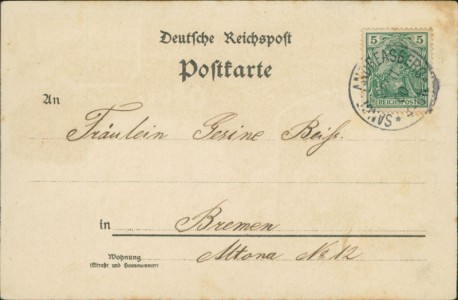 Deutsche Reichspost
Postkarte
5 5
REICHSPOST
SANKT ANDREASBERG
An
Fräulein Gesine
in Bremen
Wohnung
(Straße und Hausnummer)
Altona No 12